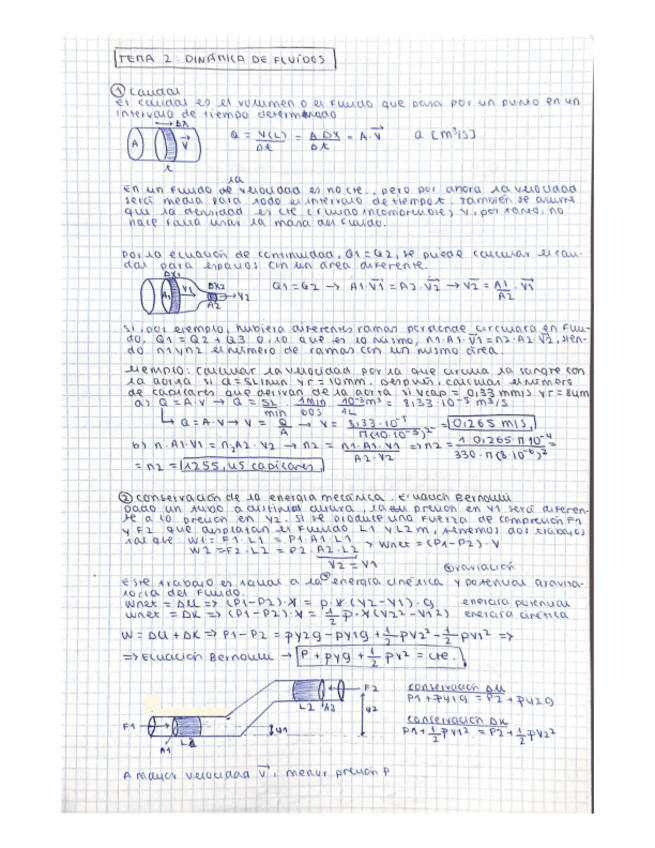 TEMA 2: DINÁMICA DE FLUÍDOS
① Caudal
El caudal es el volumen o el fluido que pasa por un punto en un
intervalo de tiempo determinado
Δx
A V⃗ Q = V(L)/Δt = A·Δx/Δt = A·V⃗ Q [m³/s]
t
la
En un fluido de velocidad es no cte., pero por ahora la velocidad
será media para todo el intervalo de tiempo t. También se asume
que la densidad es cte (fluido incompresible) y, por tanto, no
hace falta usar la masa del fluido.
Por la ecuación de continuidad, Q1 = Q2, se puede calcular el cau-
dal para espacios con un área diferente.
Δx1 Δx2
A1 V1 V2 A2 Q1=Q2 → A1·V1⃗ = A2·V2⃗ → V2⃗ = A1/A2 · V1⃗
Si, por ejemplo, hubiera diferentes ramas por donde circulara en flui-
do, Q1 = Q2 + Q3 o, lo que es lo mismo, n1·A1·V1⃗ = n2·A2·V2⃗, sien-
do n1 y n2 el número de ramas con un mismo área.
Ejemplo: calcular la velocidad por la que circula la sangre con
la aorta si Q = 5L/min y r = 10mm. Después, calcular el número
de capilares que derivan de la aorta si Vcap = 0,33 mm/s y r = 8μm
a) Q = A·V → Q = 5L/min · 1min/60s · 10⁻³m³/1L = 8,33·10⁻⁵ m³/s
↳ Q = A·V → V = Q/A → V = 8,33·10⁻⁵/π(10·10⁻³)² = 0,265 m/s
b) n·A1·V1 = n2A2·V2 → n2 = n1·A1·V1/A2·V2 => n2 = 1·0,265·π·10⁻⁴/330·π(8·10⁻⁶)² =
= n2 = 1255,45 capilares
② Conservación de la energía mecánica. Ecuación Bernoulli
Dado un tubo a distinta altura, la presión en y1 será diferen-
te a la presión en y2. Si se produce una fuerza de compresión F1
y F2 que desplazan el fluido L1 y L2 m, tenemos dos trabajos
tal que: W1 = F1·L1 = P1·A1·L1
W2 = F2·L2 = P2·A2·L2 > Wnet = (P1-P2)·V
V2 = V1
variación
Este trabajo es igual a la energía cinética y potencial gravita-
toria del fluido.
Wnet = ΔU => (P1-P2)·V = ρ·V(y2-y1)·g energía potencial
Wnet = ΔK => (P1-P2)·V = 1/2 ρ·V(V2²-V1²) energía cinética
W = ΔU + ΔK => P1-P2 = ρy2g - ρy1g + 1/2 ρV2² - 1/2 ρV1² =>
=> Ecuación Bernoulli → P + ρyg + 1/2 ρv² = cte.
F2
L2 A2 y2
F1
A1 L1 y1
conservación ΔU
P1+ρy1g = P2+ρy2g
conservación ΔK
P1+1/2ρV1² = P2+1/2ρV2²
A mayor velocidad V⃗, menor presión P